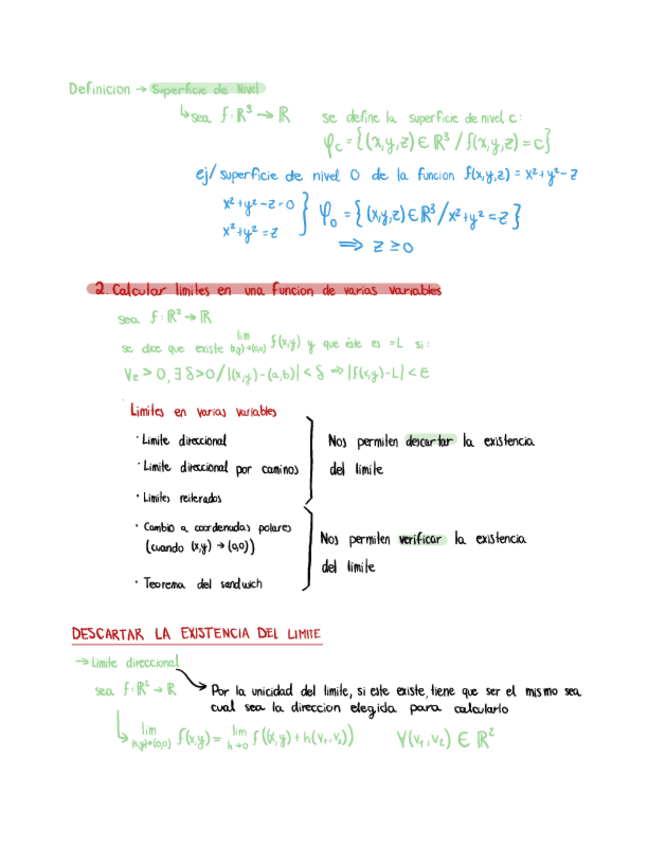 Definicion → Superficie de Nivel
↳ sea f: ℝ³ → ℝ se define la superficie de nivel c:
φc = {(x,y,z) ∈ ℝ³ / f(x,y,z) = c}
ej/ superficie de nivel 0 de la funcion f(x,y,z) = x² + y² - z
x² + y² - z = 0
x² + y² = z } φ₀ = {(x,y,z) ∈ ℝ³ / x² + y² = z}
⟹ z ≥ 0
2. Calcular limites en una funcion de varias variables
sea f: ℝ² → ℝ
se dice que existe lim (x,y)→(a,b) f(x,y) y que éste es = L si:
∀ε > 0, ∃ δ > 0 / |(x,y) - (a,b)| < δ ⇒ |f(x,y) - L| < ε
Limites en varias variables
· Limite direccional
· Limite direccional por caminos
· Limites reiterados
Nos permiten descartar la existencia
del limite
· Cambio a coordenadas polares
(cuando (x,y) → (0,0))
· Teorema del sandwich
Nos permiten verificar la existencia
del limite
DESCARTAR LA EXISTENCIA DEL LIMITE
→ Limite direccional
sea f: ℝ² → ℝ
Por la unicidad del limite, si este existe, tiene que ser el mismo sea
cual sea la direccion elegida para calcularlo
↳ lim (x,y)→(0,0) f(x,y) = lim h→0 f((x,y) + h(v₁,v₂)) ∀(v₁,v₂) ∈ ℝ²